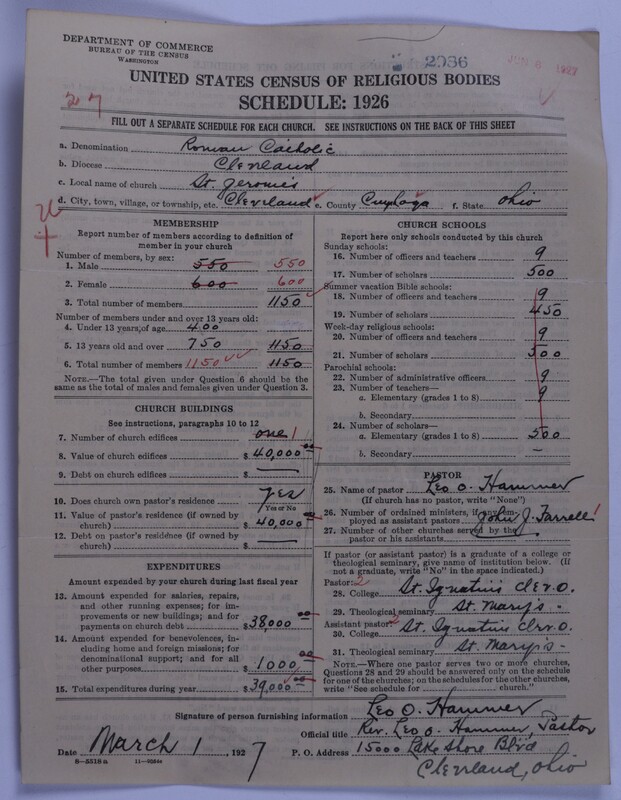 DEPARTMENT OF COMMERCE
BUREAU OF THE CENSUS
WASHINGTON
2036
JUN 6 1927
UNITED STATES CENSUS OF RELIGIOUS BODIES
SCHEDULE: 1926
27
FILL OUT A SEPARATE SCHEDULE FOR EACH CHURCH. SEE INSTRUCTIONS ON THE BACK OF THIS SHEET
a. Denomination Roman Catholic
b. Diocese Cleveland
c. Local name of church St. Jerome's
d. City, town, village, or township, etc. Cleveland e. County Cuyhoga f. State Ohio
MEMBERSHIP
Report number of members according to definition of
member in your church
Number of members, by sex:
1. Male 550 550
2. Female 600 600
3. Total number of members 1150
Number of members under and over 13 years old:
4. Under 13 years of age 400
5. 13 years old and over 750 1150
6. Total number of members 1150 1150
NOTE.—The total given under Question 6 should be
the same as the total of males and females given under Question 3.
CHURCH BUILDINGS
See instructions, paragraphs 10 to 12
7. Number of church edifices one 1
8. Value of church edifices $ 40,000 00
9. Debt on church edifices $ —
10. Does church own pastor's residence yes
Yes or No
11. Value of pastor's residence (if owned by
church) $ 40,000 00
12. Debt on pastor's residence (if owned by
church) $ —
EXPENDITURES
Amount expended by your church during last fiscal year
13. Amount expended for salaries, repairs,
and other running expenses; for im-
provements or new buildings; and for
payments on church debt $ 38,000 00
14. Amount expended for benevolences, in-
cluding home and foreign missions; for
denominational support; and for all
other purposes $ 1000 00
15. Total expenditures during year $ 39,000 00
CHURCH SCHOOLS
Report here only schools conducted by this church
Sunday schools:
16. Number of officers and teachers 9
17. Number of scholars 500
Summer vacation Bible schools:
18. Number of officers and teachers 9
19. Number of scholars 450
Week-day religious schools:
20. Number of officers and teachers 9
21. Number of scholars 500
Parochial schools:
22. Number of administrative officers 9
23. Number of teachers—
a. Elementary (grades 1 to 8) 9
b. Secondary
24. Number of scholars—
a. Elementary (grades 1 to 8) 500
b. Secondary —
PASTOR
25. Name of pastor Leo O. Hammer
(If church has no pastor, write "None")
26. Number of ordained ministers, if any, em-
ployed as assistant pastors John J. Farrell 1
27. Number of other churches served by the
pastor or his assistants
If pastor (or assistant pastor) is a graduate of a college or
theological seminary, give name of institution below. (If
not a graduate, write "No" in the space indicated.)
Pastor: 2
28. College St. Ignatius Clev. O.
29. Theological seminary St. Mary's -
Assistant pastor: 2
30. College St. Ignatius Clev. O.
31. Theological seminary St. Mary's -
NOTE.—Where one pastor serves two or more churches,
Questions 28 and 29 should be answered only on the schedule
for one of the churches; on the schedules for the other churches,
write "See schedule for church."
Signature of person furnishing information Leo O. Hammer
Official title Rev. Leo O. Hammer, Pastor
Date March 1, 1927 P. O. Address 15000 Lake Shore Blvd
8-5518 a
Cleveland, Ohio